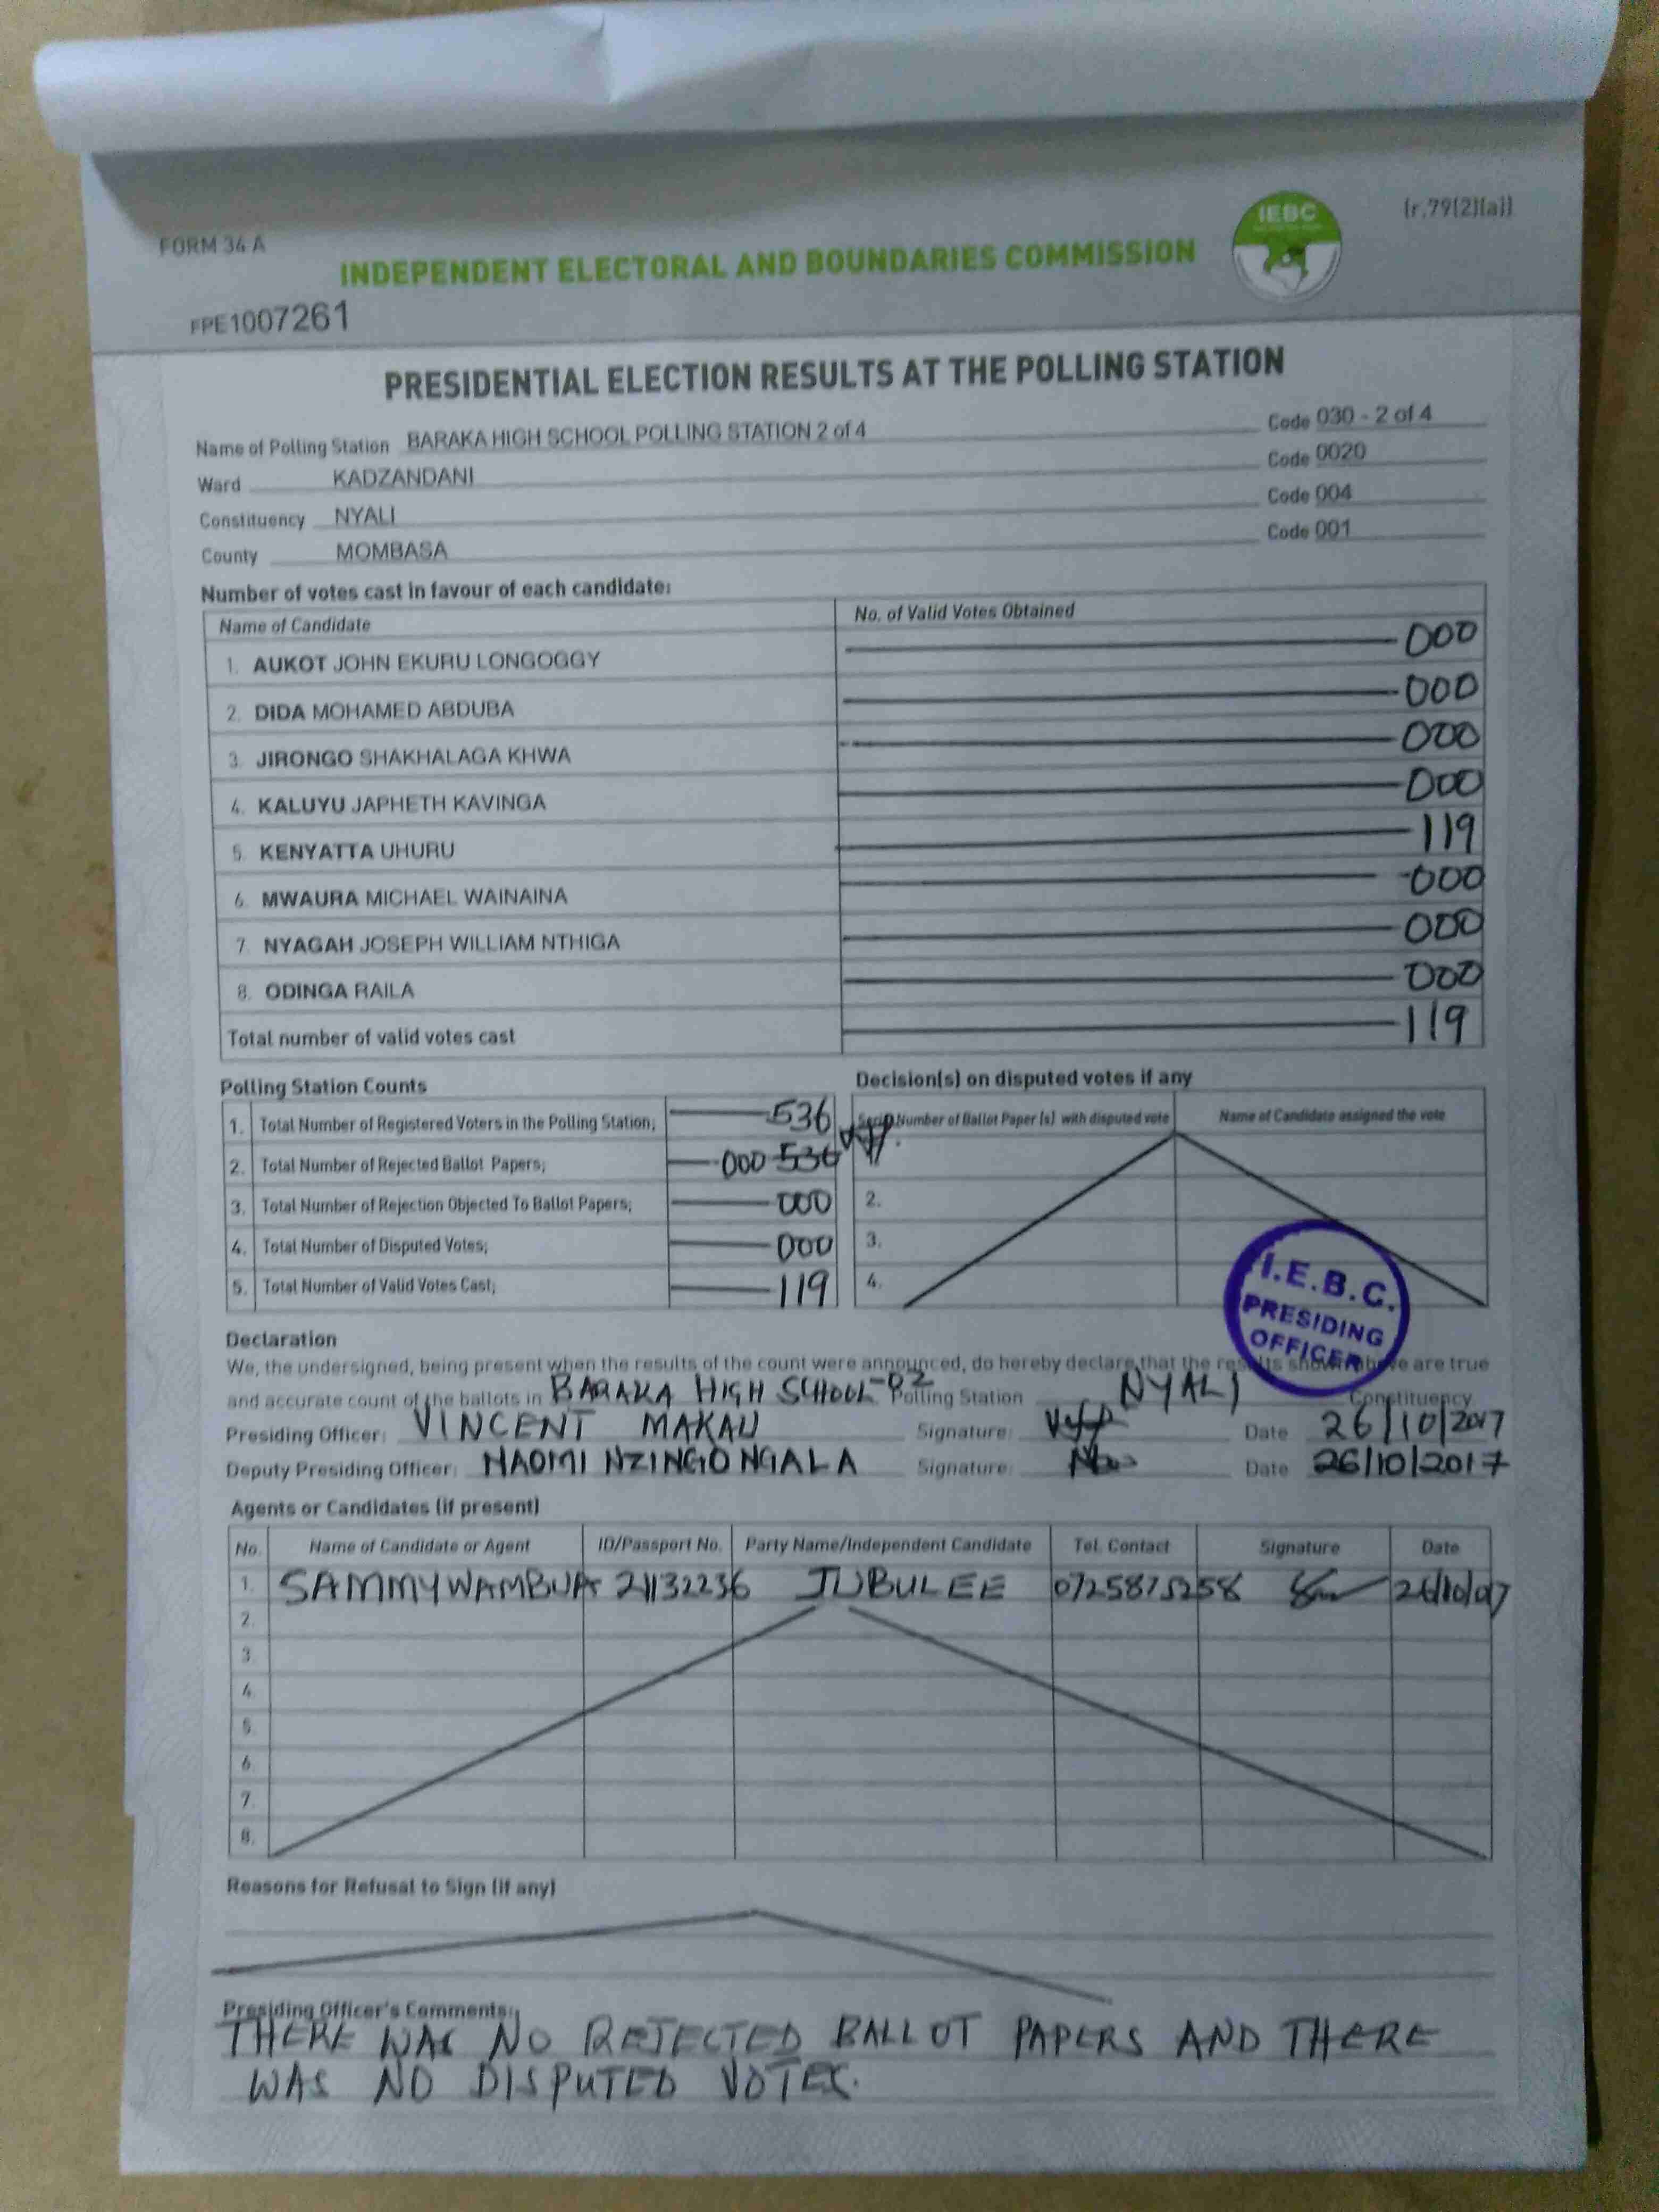 FORM 34 A
IEBC
(r.79(2)(a))
INDEPENDENT ELECTORAL AND BOUNDARIES COMMISSION
FPE1007261
PRESIDENTIAL ELECTION RESULTS AT THE POLLING STATION
Name of Polling Station BARAKA HIGH SCHOOL POLLING STATION 2 of 4 Code 030 - 2 of 4
Ward KADZANDANI Code 0020
Constituency NYALI Code 004
County MOMBASA Code 001
Number of votes cast in favour of each candidate:
Name of Candidate No. of Valid Votes Obtained
1. AUKOT JOHN EKURU LONGOGGY 000
2. DIDA MOHAMED ABDUBA 000
3. JIRONGO SHAKHALAGA KHWA 000
4. KALUYU JAPHETH KAVINGA 000
5. KENYATTA UHURU 119
6. MWAURA MICHAEL WAINAINA 000
7. NYAGAH JOSEPH WILLIAM NTHIGA 000
8. ODINGA RAILA 000
Total number of valid votes cast 119
Polling Station Counts
1. Total Number of Registered Voters in the Polling Station; 536
2. Total Number of Rejected Ballot Papers; 000 536
3. Total Number of Rejection Objected To Ballot Papers; 000
4. Total Number of Disputed Votes; 000
5. Total Number of Valid Votes Cast; 119
Decision(s) on disputed votes if any
Number of Ballot Paper (s) with disputed vote Name of Candidate assigned the vote
2.
3.
4.
I.E.B.C.
PRESIDING
OFFICER
Declaration
We, the undersigned, being present when the results of the count were announced, do hereby declare that the results shown above are true
and accurate count of the ballots in BARAKA HIGH SCHOOL-02 Polling Station NYALI Constituency
Presiding Officer: VINCENT MAKAU Signature: Date 26/10/2017
Deputy Presiding Officer: NAOMI NZINGO NGALA Signature: Date 26/10/2017
Agents or Candidates (if present)
No. Name of Candidate or Agent ID/Passport No. Party Name/Independent Candidate Tel. Contact Signature Date
1. SAMMY WAMBUA 21132236 JUBULEE 0725875258 26/10/017
2.
3.
4.
5.
6.
7.
8.
Reasons for Refusal to Sign (if any)
Presiding Officer's Comments:
THERE WAS NO REJECTED BALLOT PAPERS AND THERE
WAS NO DISPUTED VOTES.